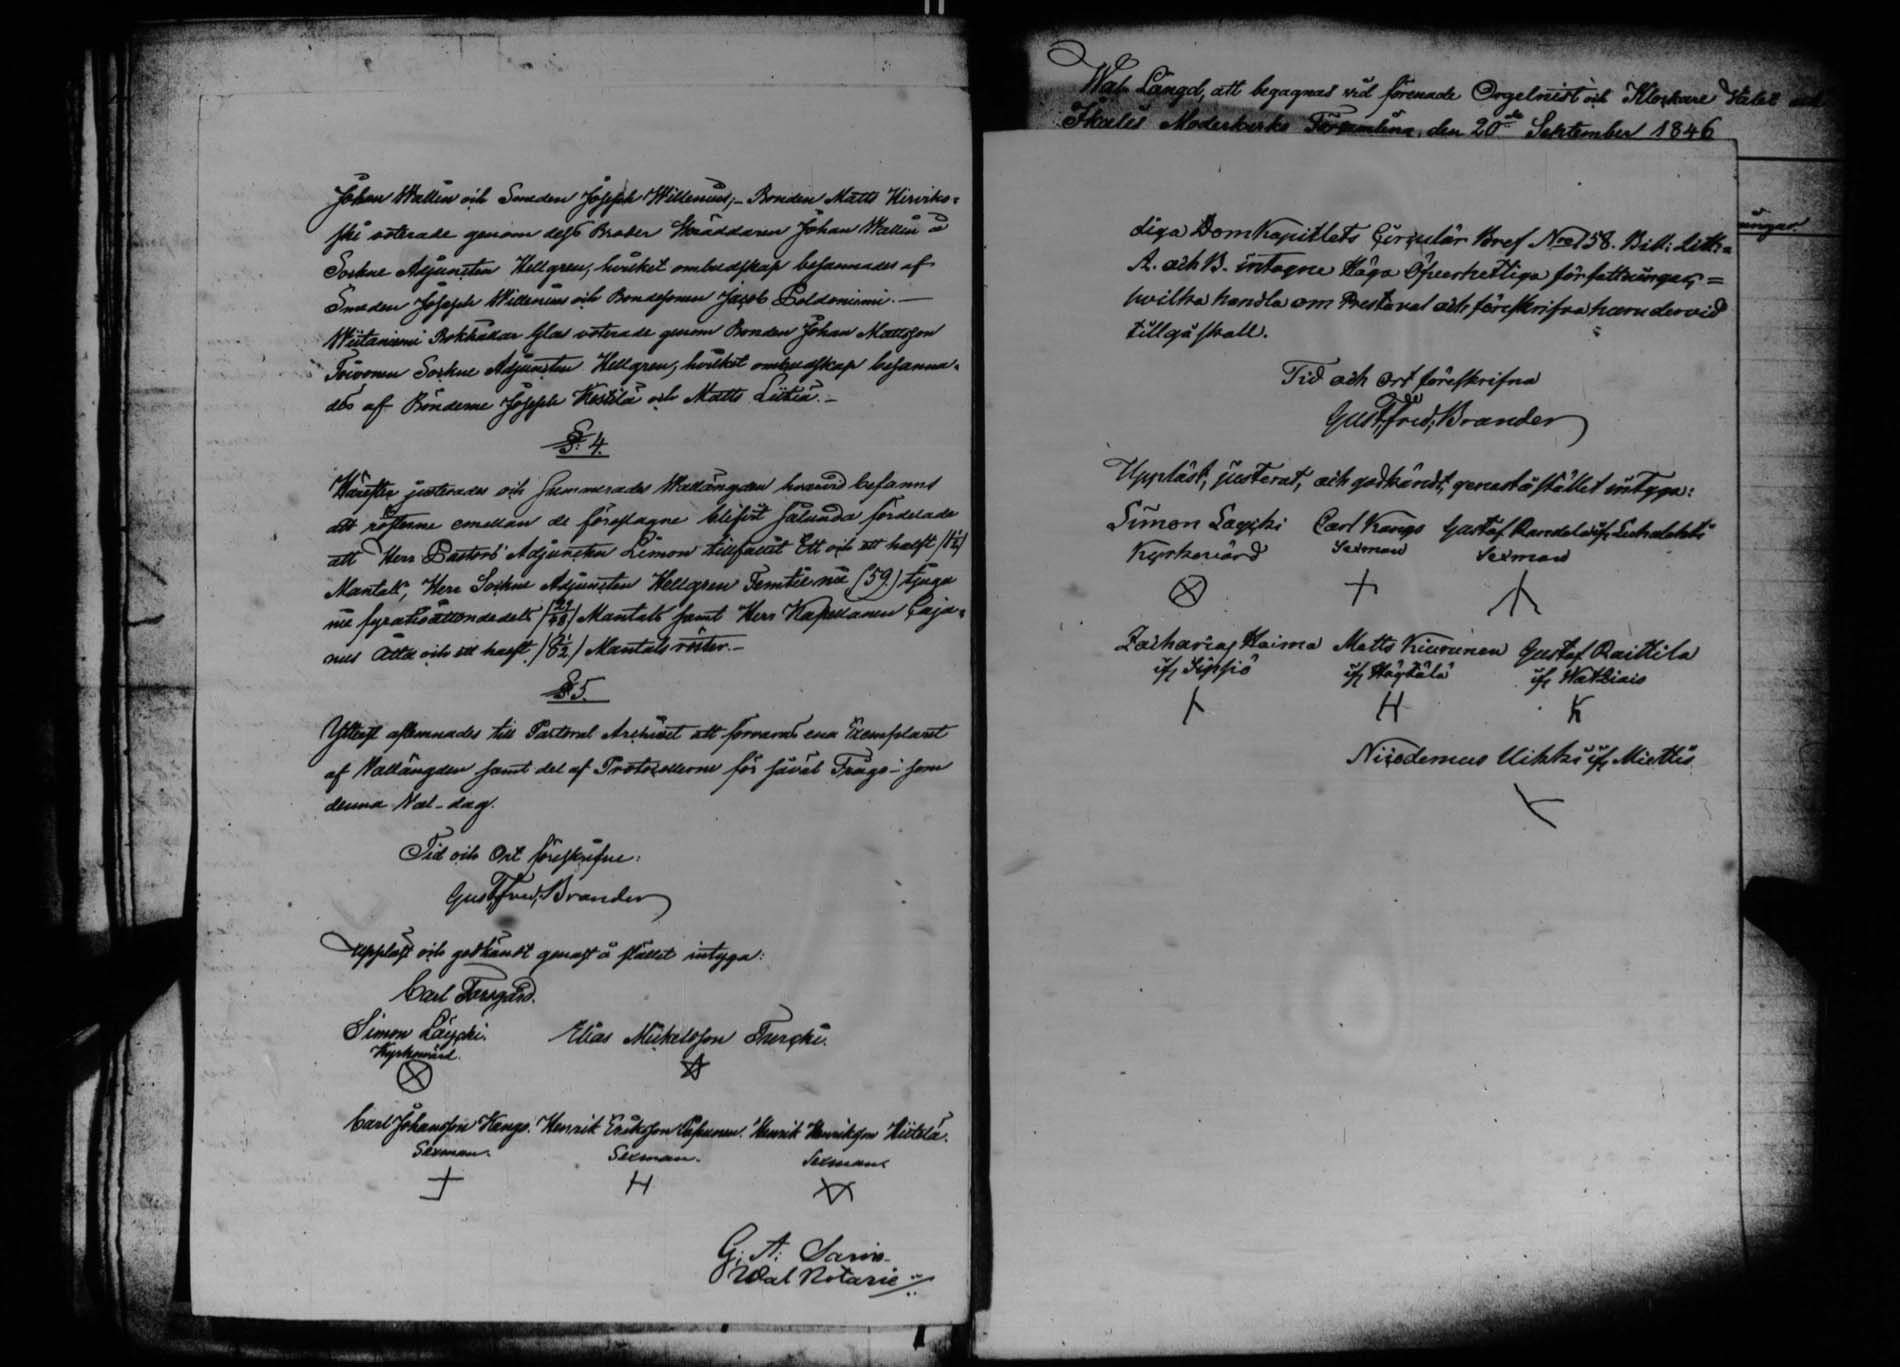 Johan Wallin och Smeden Joseph Willenius;– Bonden Matts Hirviko=
ski voterade genom dess Broder Skräddaren Johan Wallin å
Sockne Adjuncten Hellgren, hvilket ombudskap besannades af
Smeden Joseph Willenius och Bondesonen Jacob Poldoniemi.–
Wiitaniemi Bokhållar Glas voterade genom Bonden Johan Mattsson
Toivonen Sockne Adjuncten Hellgren, hvilket ombudskap besanna-
des af Bönderne Joseph Kestilä och Matts Liitiä.–
§. 4.
Härefter justerades och summerades Wallängden hvarvid befanns
att rösterne emellan de föreslagne blifvit sålunda fördelade
att Herr Pastors Adjuncten Limon tillfallit Ett och ett halft /1½/
Mantall, Herr Sockne Adjuncten Hellgren Femtie nie (59.) tjugu
nie fyratioåttondedels /29/48/ Mantals samt Herr Kapellanen Caja=
nus Åtta och ett halft /8½/ Mantals röster.–
§ 5.
Ytterst aflemnades till Pastoral Archivet att förvaras ena Exemplaret
af Wallängden samt det af Protocollerne för såväl Frågo- som
denna Val-dag.
Tid och Ort föreskrifne:
Gust. Fred. Brander
Uppläst och godkändt genast å stället intyga:
Carl Forsgård.
Simon Laijcki. Elias Mickelsson Turcki.
Kyrkovärd.
Carl Johansson Kango. Henrik Eriksson Henrik Henriksson Hiitelä.
Sexman. Sexman. Sexman.
G: A: Sarin
Wal Notarie
Wal Längd, att begagnas vid förenade Orgelnist och Klockare Valet
Ikalis Moderkyrko Församling, den 20de September 1846
ningar
diga Domkapitlets Circulär Bref No 158. Bil: Litt:a
A. och B. intagne Höga Öfverhetliga författningar, =
hvilka handla om Prestaval och föreskrifva huru dervid
tillgå skall.
Tid och ort föreskrifna
Gust. Fred. Brander
Uppläst, justerat, och godkändt, genast å stället intyga:
Simon Laijcki Carl Kango Gustaf Randela if
Kyrkovärd Sexman Sexman
Zacharias Haima Matts Kiurunen Gustaf Raittila
if Sipsiö if Höytälä if Watziais
K H K
Nicodemus Uikki if Miettis